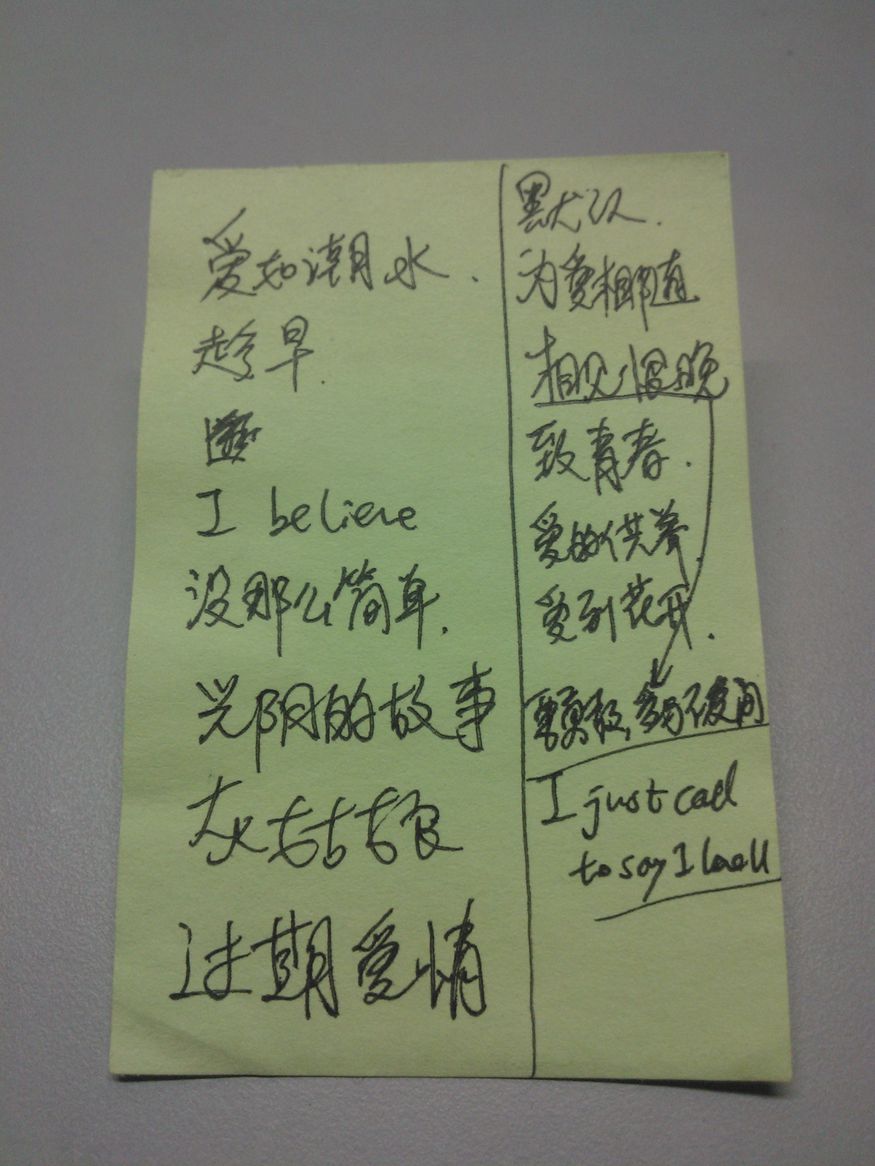 爱如潮水.
趁早.
I believe
没那么简单.
光阴的故事
灰姑姑娘
过期爱情
默认.
为爱相随
相见恨晚
致青春.
爱的供养
爱到花开.
I just call
to say I love U